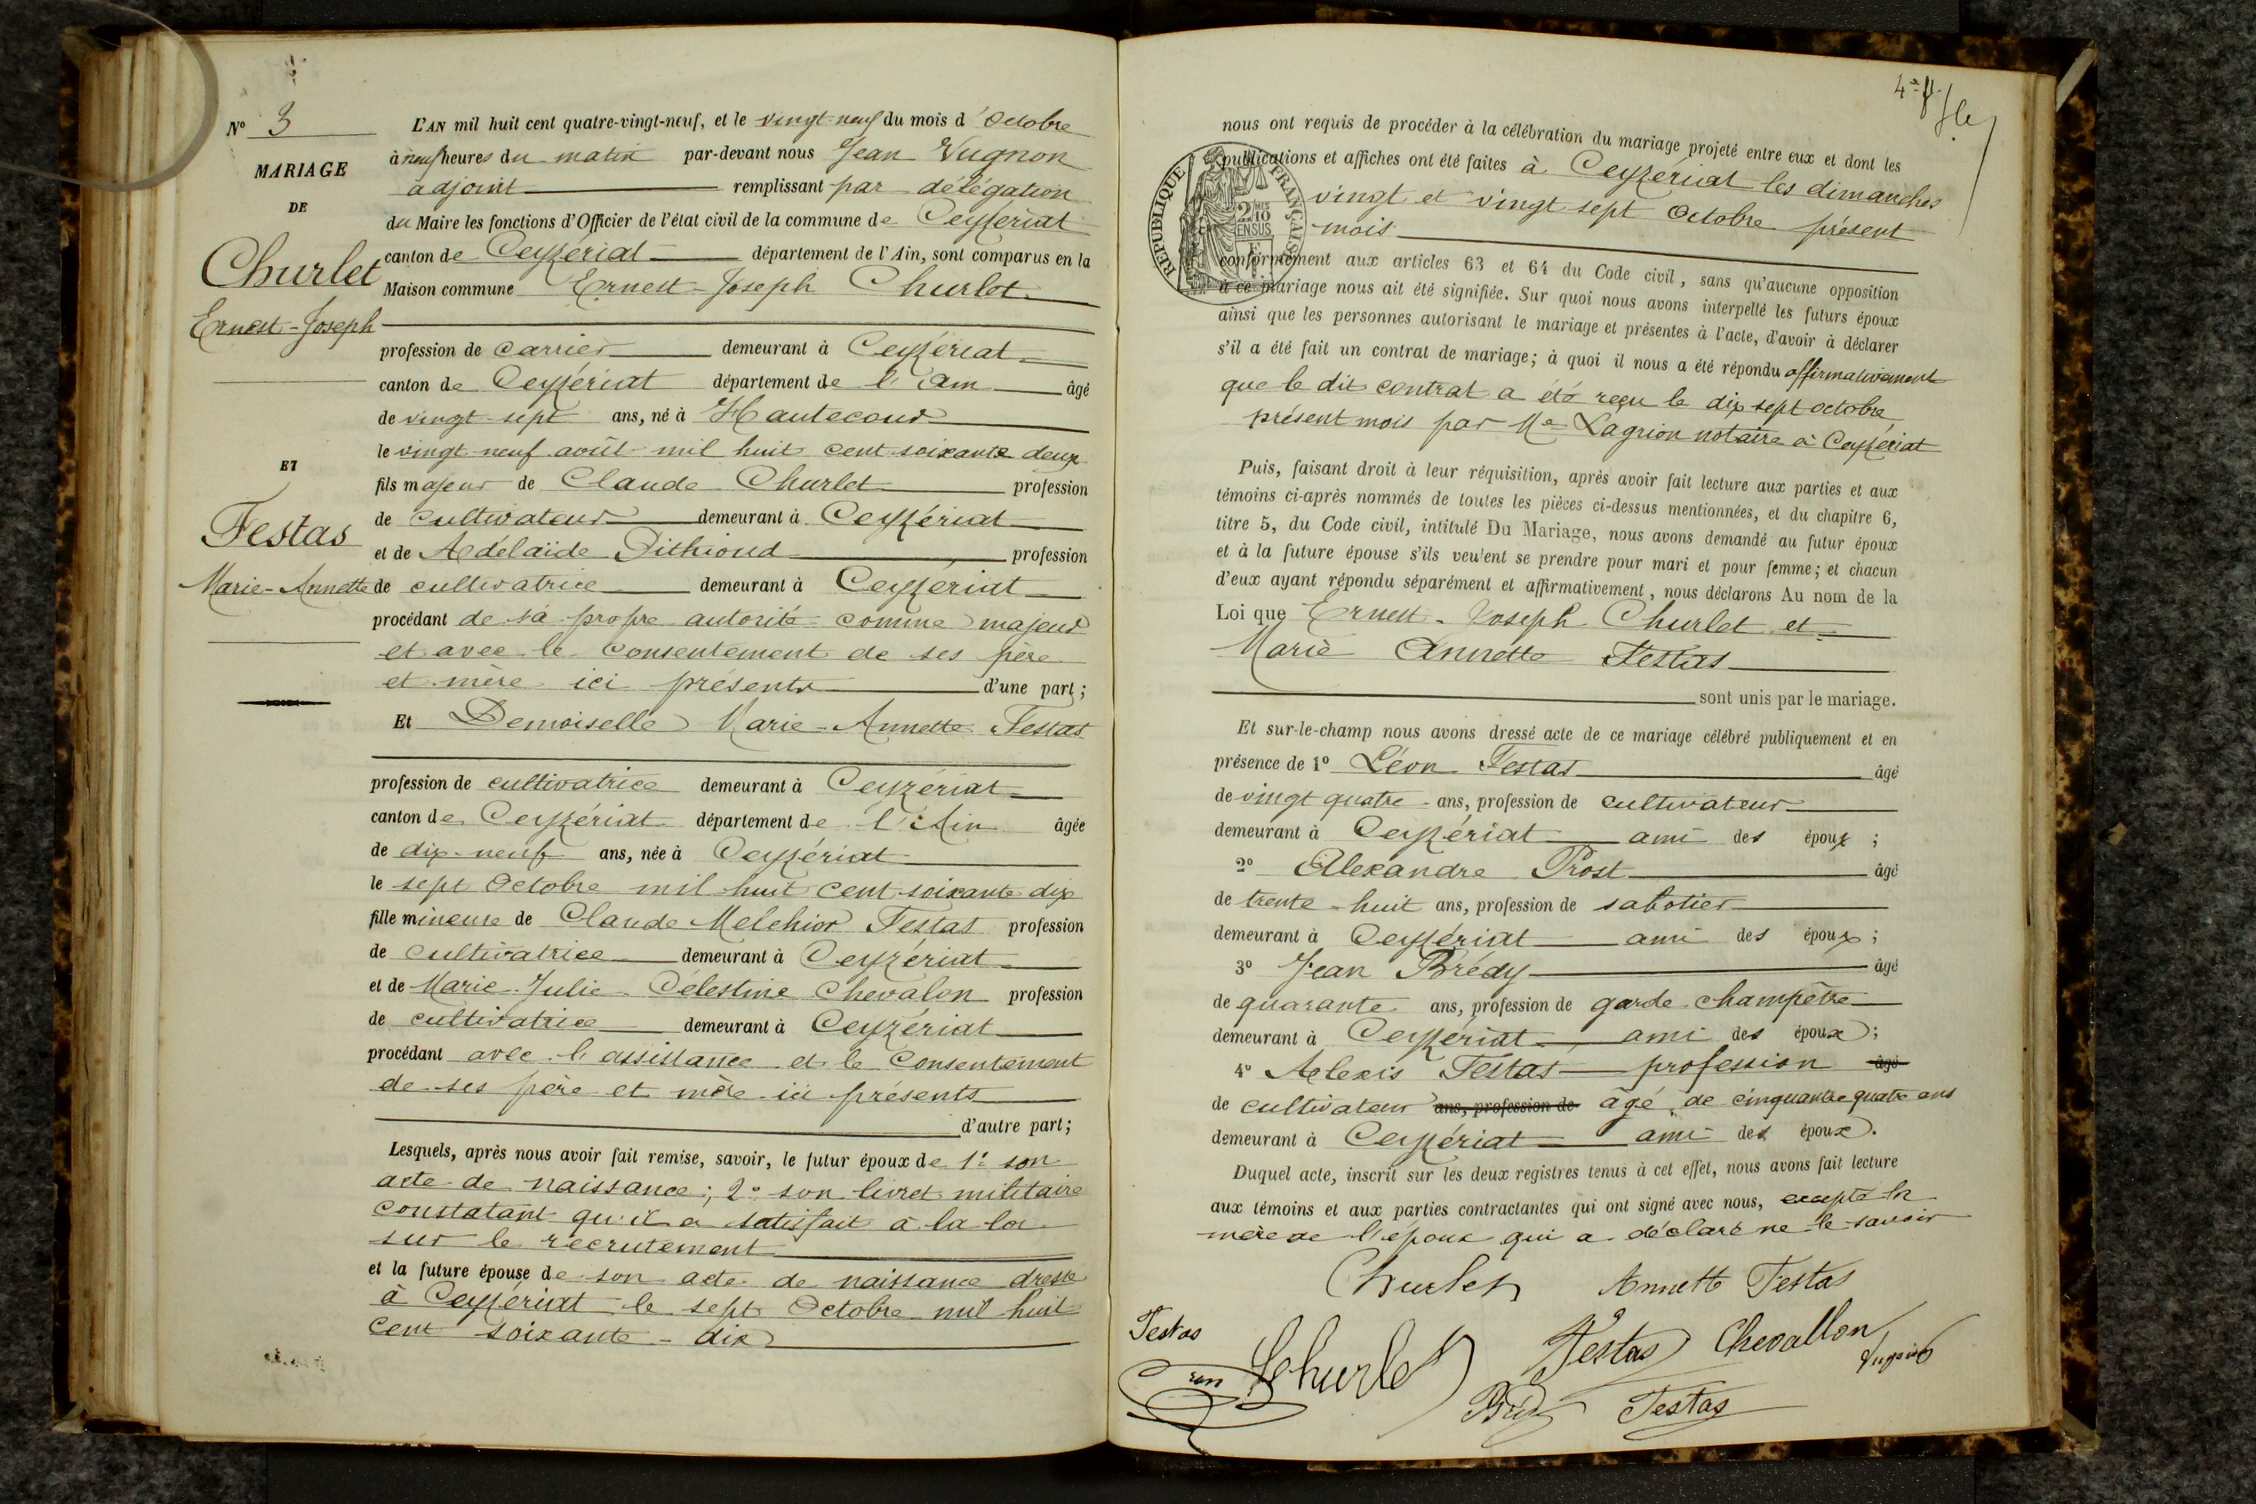 N° 3
MARIAGE
DE
Churlet
Ernest-Joseph
ET
Festas
Marie-Annette
L'AN mil huit cent quatre-vingt-neuf, et le vingt-neuf du mois d'Octobre
à neuf heures du matin par-devant nous Jean Vugnon
adjoint remplissant par délégation
du Maire les fonctions d'Officier de l'état civil de la commune de Ceyzériat
canton de Ceyzériat département de l'Ain, sont comparus en la
Maison commune Ernest-Joseph Churlet
profession de carrier demeurant à Ceyzériat
canton de Ceyzériat département de l'Ain âgé
de vingt-sept ans, né à Hautecour
le vingt-neuf août mil huit cent soixante deux
fils majeur de Claude Churlet profession
de cultivateur demeurant à Ceyzériat
et de Adélaïde Pithioud profession
de cultivatrice demeurant à Ceyzériat
procédant de sa propre autorité comme majeur
et avec le consentement de ses père
et mère ici présents d'une part;
Et Demoiselle Marie-Annette Festas
profession de cultivatrice demeurant à Ceyzériat
canton de Ceyzériat département de l'Ain âgée
de dix-neuf ans, née à Ceyzériat
le sept Octobre mil huit cent soixante dix
fille mineure de Claude Melchior Festas profession
de cultivatrice demeurant à Ceyzériat
et de Marie-Julie Célestine Chevalon profession
de cultivatrice demeurant à Ceyzériat
procédant avec l'assistance et le consentement
de ses père et mère ici présents
d'autre part;
Lesquels, après nous avoir fait remise, savoir, le futur époux de 1° son
acte de naissance; 2° son livret militaire
constatant qu'il a satisfait à la loi
sur le recrutement
et la future épouse de son acte de naissance dressé
à Ceyzériat le sept Octobre mil huit
cent soixante-dix
4e f.
RÉPUBLIQUE FRANÇAISE
2/10 EN SUS
nous ont requis de procéder à la célébration du mariage projeté entre eux et dont les
publications et affiches ont été faites à Ceyzériat les dimanches
vingt et vingt sept Octobre présent
mois
conformément aux articles 63 et 64 du Code civil, sans qu'aucune opposition
à ce mariage nous ait été signifiée. Sur quoi nous avons interpellé les futurs époux
ainsi que les personnes autorisant le mariage et présentes à l'acte, d'avoir à déclarer
s'il a été fait un contrat de mariage; à quoi il nous a été répondu affirmativement
que le dit contrat a été reçu le dix sept octobre
présent mois par Me Lagrion notaire à Ceyzériat
Puis, faisant droit à leur réquisition, après avoir fait lecture aux parties et aux
témoins ci-après nommés de toutes les pièces ci-dessus mentionnées, et du chapitre 6,
titre 5, du Code civil, intitulé Du Mariage, nous avons demandé au futur époux
et à la future épouse s'ils veulent se prendre pour mari et pour femme; et chacun
d'eux ayant répondu séparément et affirmativement, nous déclarons Au nom de la
Loi que Ernest-Joseph Churlet et
Marie Annette Festas
sont unis par le mariage.
Et sur-le-champ nous avons dressé acte de ce mariage célébré publiquement et en
présence de 1° Léon Festas âgé
de vingt quatre ans, profession de cultivateur
demeurant à Ceyzériat ami des époux;
2° Alexandre Prost âgé
de trente-huit ans, profession de sabotier
demeurant à Ceyzériat ami des époux;
3° Jean Brédy âgé
de quarante ans, profession de garde champêtre
demeurant à Ceyzériat ami des époux;
4° Alexis Festas profession âgé
de cultivateur ans, profession de âgé de cinquante quatre ans
demeurant à Ceyzériat ami des époux.
Duquel acte, inscrit sur les deux registres tenus à cet effet, nous avons fait lecture
aux témoins et aux parties contractantes qui ont signé avec nous, excepté la
mère de l'époux qui a déclaré ne le savoir
Churlet Annette Festas
Festas Churlet Festas Chevallon
Brédy Festas